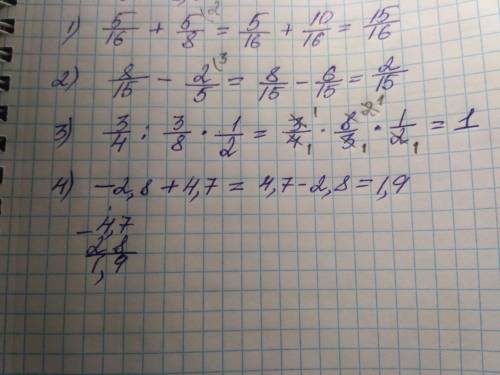 1) 5/16 + 5/8 (2 = 5/16 + 10/16 = 15/16
2) 8/15 - 2/5 (3 = 8/15 - 6/15 = 2/15
3) 3/4 : 3/8 · 1/2 = 3/4 · 8/3 · 1/2 = 1
4) -2,8 + 4,7 = 4,7 - 2,8 = 1,9
- 4,7
2 8
1,9